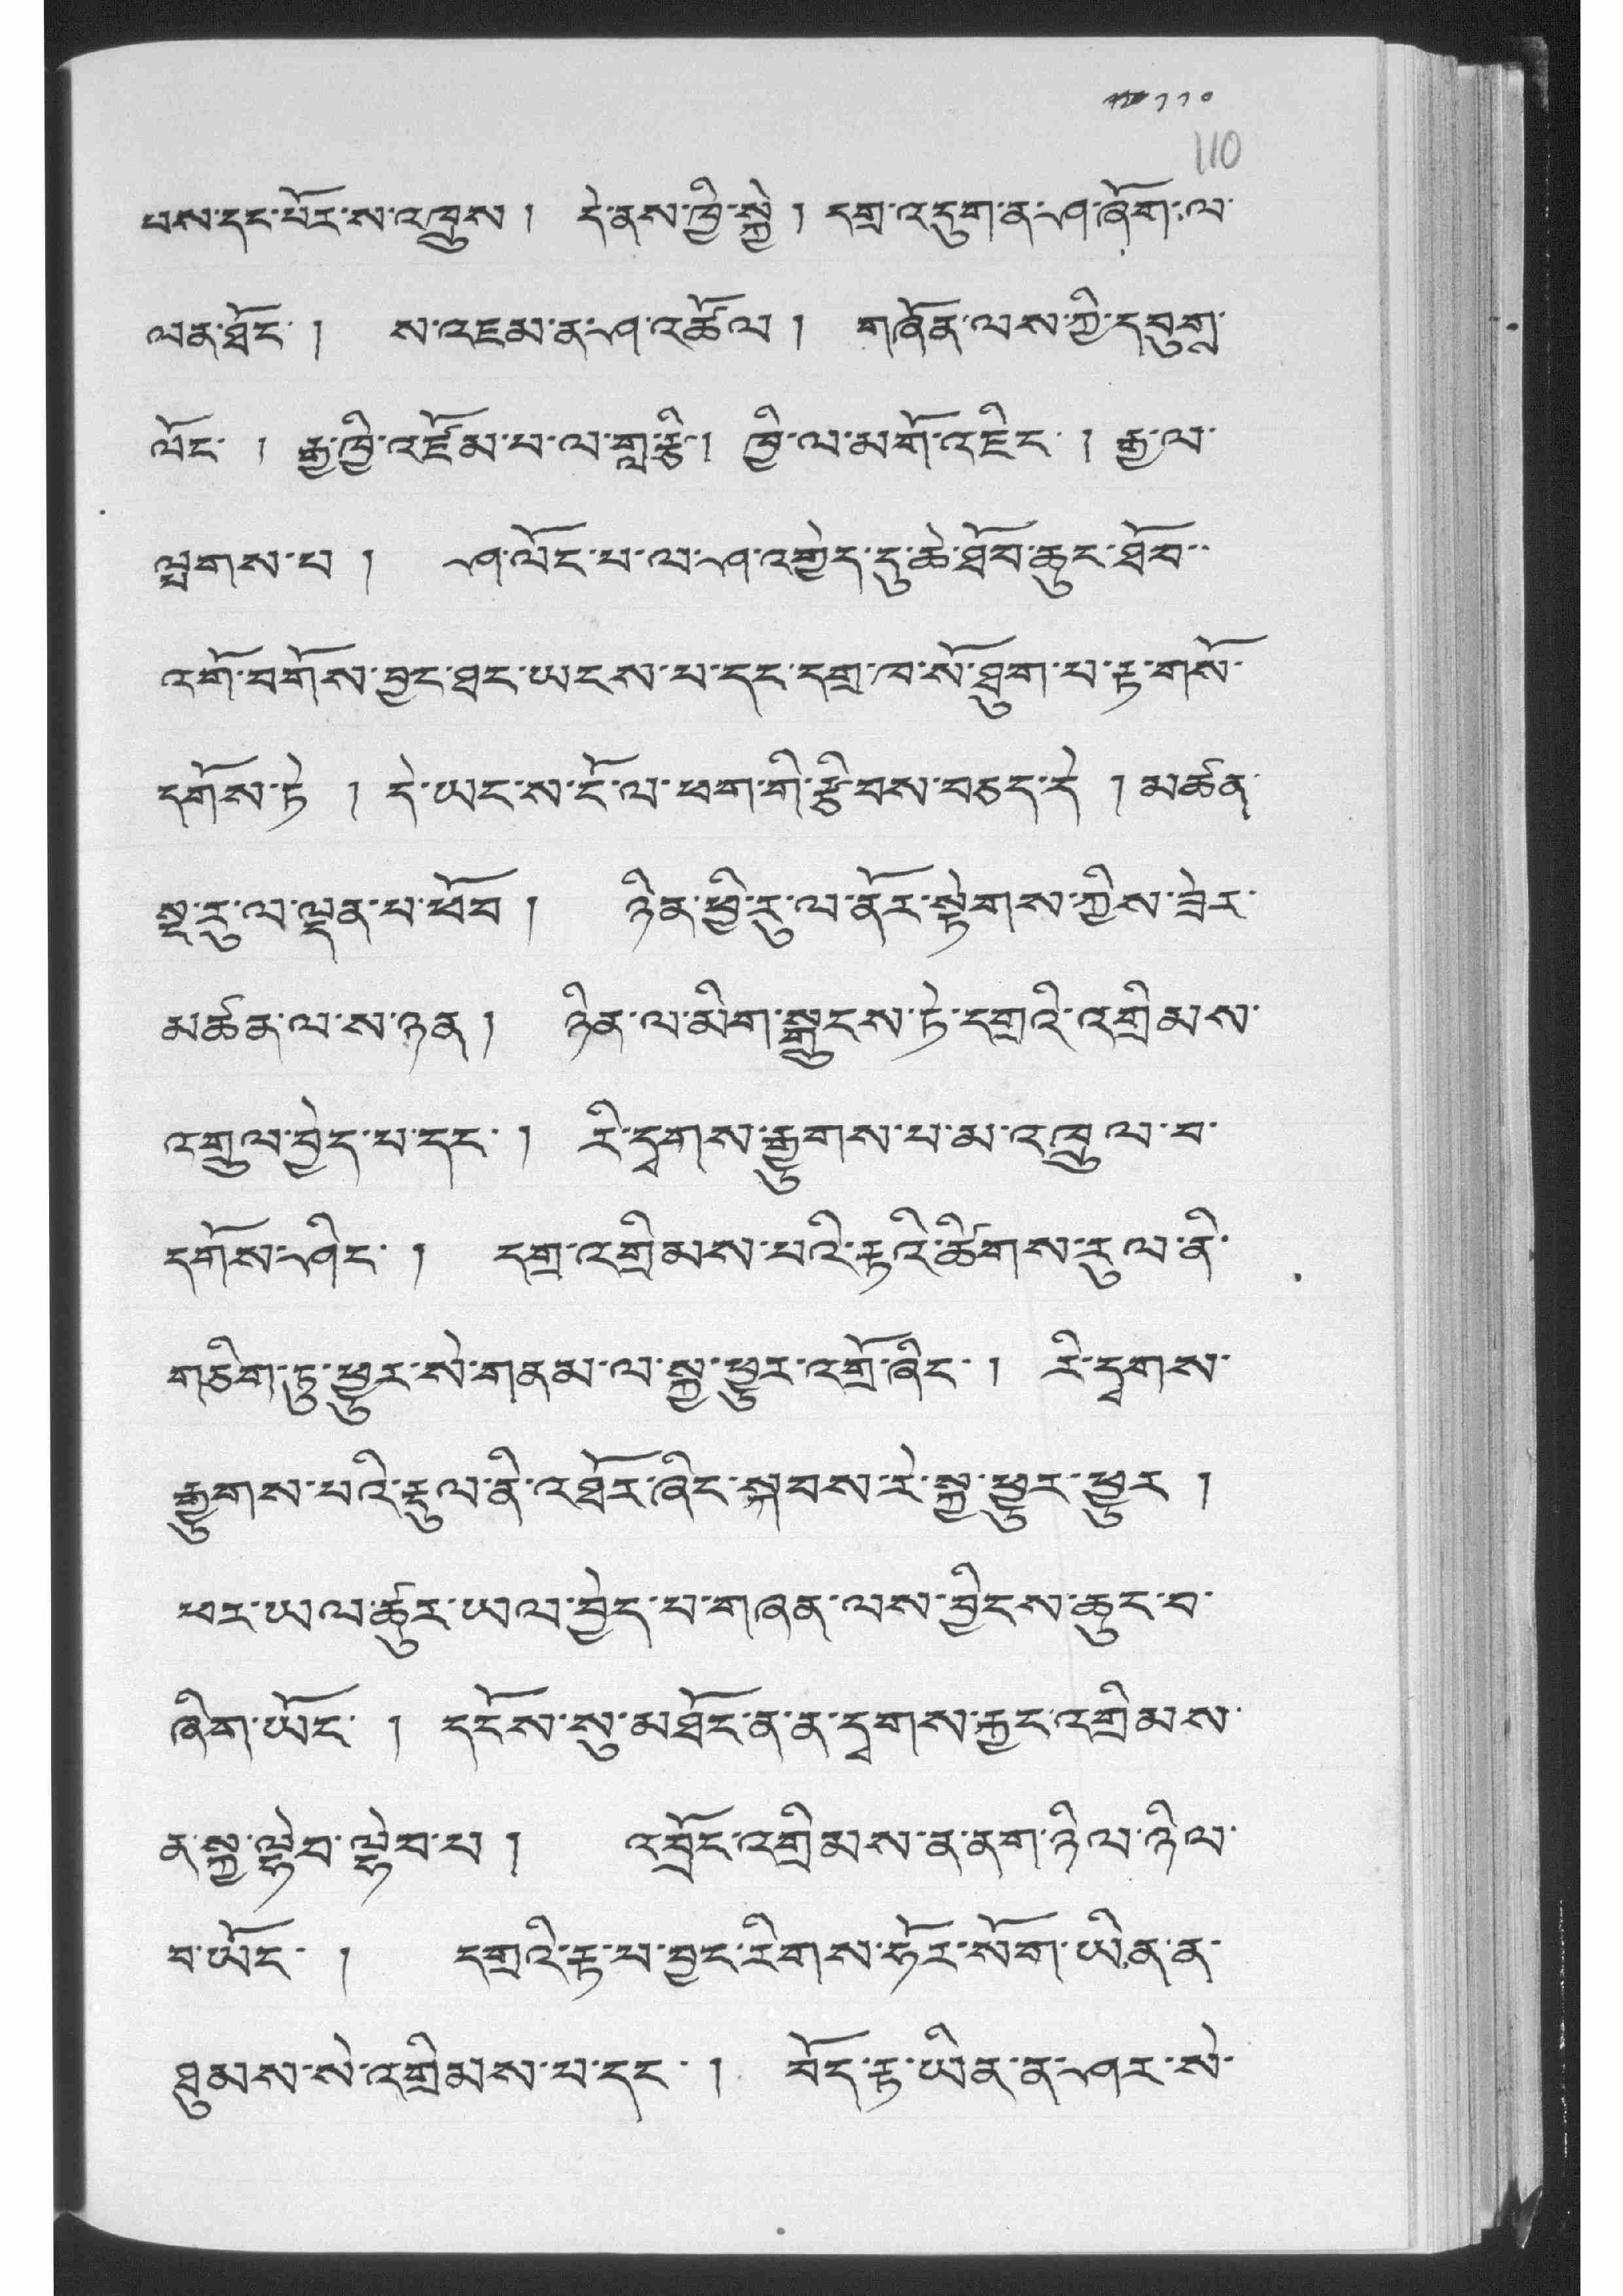 ༡༡༠
110
པས་དང་པོར་ས་འཁྲུས། དེ་ནས་ཁྱི་སྐྱེ། དགྲ་འདུག་ན་ཤ་ཞོག་ལ་
ལན་ཐོང་། ས་འཇམ་ན་ཤ་འཚོལ། གཞོན་ལས་ཀྱི་དབུགྲ་
ལོང་། རྒྱ་ཁྱི་འཛོམ་པ་ལ་གླ་རྩི། ཁྱི་ལ་མགོ་འཇིང་། རྒྱ་ལ་
ལྤགས་པ། ཤ་ལོང་པ་ལ་ཤ་འགྱེད་དུ་ཆེ་ཐོབ་ཆུང་ཐོབ་
འགོ་བགོས་བྱང་ཐང་ཡངས་པ་དང་དགྲ་ཁ་སོ་ཐུག་པ་རྟ་གསོ་
དགོས་ཏེ། དེ་ཡང་ས་ངོ་ལ་ཕག་གི་རྩིབས་བཅད་དེ། མཚན་
སྔ་རུ་ལ་ལྡན་པ་ཕོབ། ཉིན་ཕྱི་རུ་ལ་ནོར་སྟེགས་ཀྱིས་ཟེར་
མཚན་ལ་ས་ཉན། ཉིན་ལ་མིག་སྒྲངས་ཏེ་དགྲའི་འགྲིམས་
འགྲུལ་བྱེད་པ་དང་། རི་དྭགས་རྒྱུགས་པ་མ་འཁྲུལ་བ་
དགོས་ཤིང་། དགྲ་འགྲིམས་པའི་རྟའི་ཚིགས་རུལ་ནི་
གཅིག་ཏུ་ཕྱུར་སེ་གནམ་ལ་སྐྱ་ཕྱུར་འགྲོ་ཞིང་། རི་དྭགས་
རྒྱུགས་པའི་རྡུལ་ནི་འཐོར་ཞིང་སྐབས་རེ་སྐྱ་ཕྱུར་ཕྱུར།
ཕར་ཡལ་ཚུར་ཡལ་བྱེད་པ་གཞན་ལས་བྱིངས་ཆུང་བ་
ཞིག་ཡོང་། དངོས་སུ་མཐོང་ན་ན་དྭགས་རྐྱང་འགྲིམས་
ན་སྐྱ་ལྷེབ་ལྷེབ་པ། འབྲོང་འགྲིམས་ན་ནག་ཉིལ་ཉིལ་
བ་ཡོང་། དགྲའི་རྟ་པ་བྱང་རིགས་ཧོར་སོག་ཡིན་ན་
ཐུམས་སེ་འགྲིམས་པ་དང་། བོད་རྟ་ཡིན་ན་ཤར་སེ་